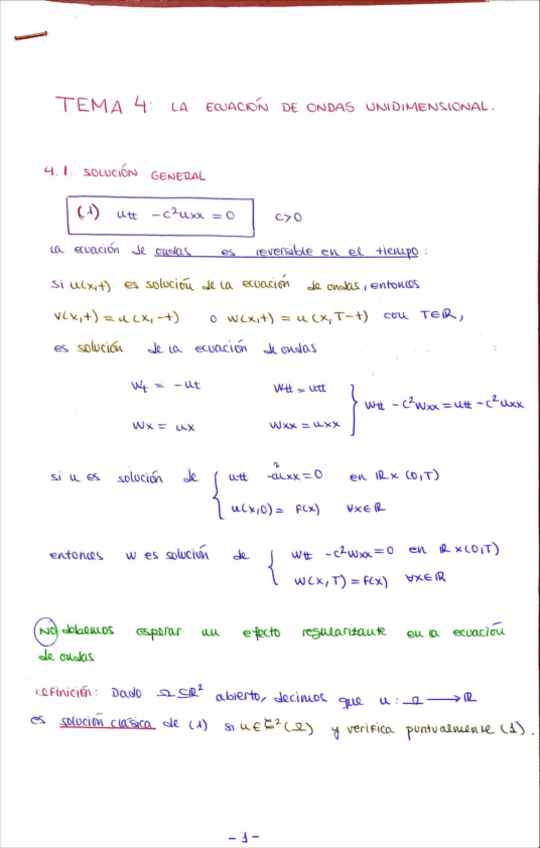 TEMA 4: LA ECUACIÓN DE ONDAS UNIDIMENSIONAL.
4.1. SOLUCIÓN GENERAL
(1) utt - c²uxx = 0 c>0
La ecuación de ondas es reversible en el tiempo:
si u(x,t) es solución de la ecuación de ondas, entonces
v(x,t) = u(x,-t) o w(x,t) = u(x,T-t) con T∈ℝ,
es solución de la ecuación de ondas
wt = -ut wtt = utt
wtt - c²wxx = utt - c²uxx
wx = ux wxx = uxx
si u es solución de { utt - c²uxx = 0 en ℝ x (0,T)
u(x,0) = f(x) ∀x∈ℝ
entonces w es solución de { wtt - c²wxx = 0 en ℝ x (0,T)
w(x,T) = f(x) ∀x∈ℝ
NO debemos esperar un efecto regularizante en la ecuación
de ondas
Definición: Dado Ω ⊆ ℝ² abierto, decimos que u: Ω → ℝ
es solución clásica de (1) si u ∈ C²(Ω) y verifica puntualmente (1).
- 1 -